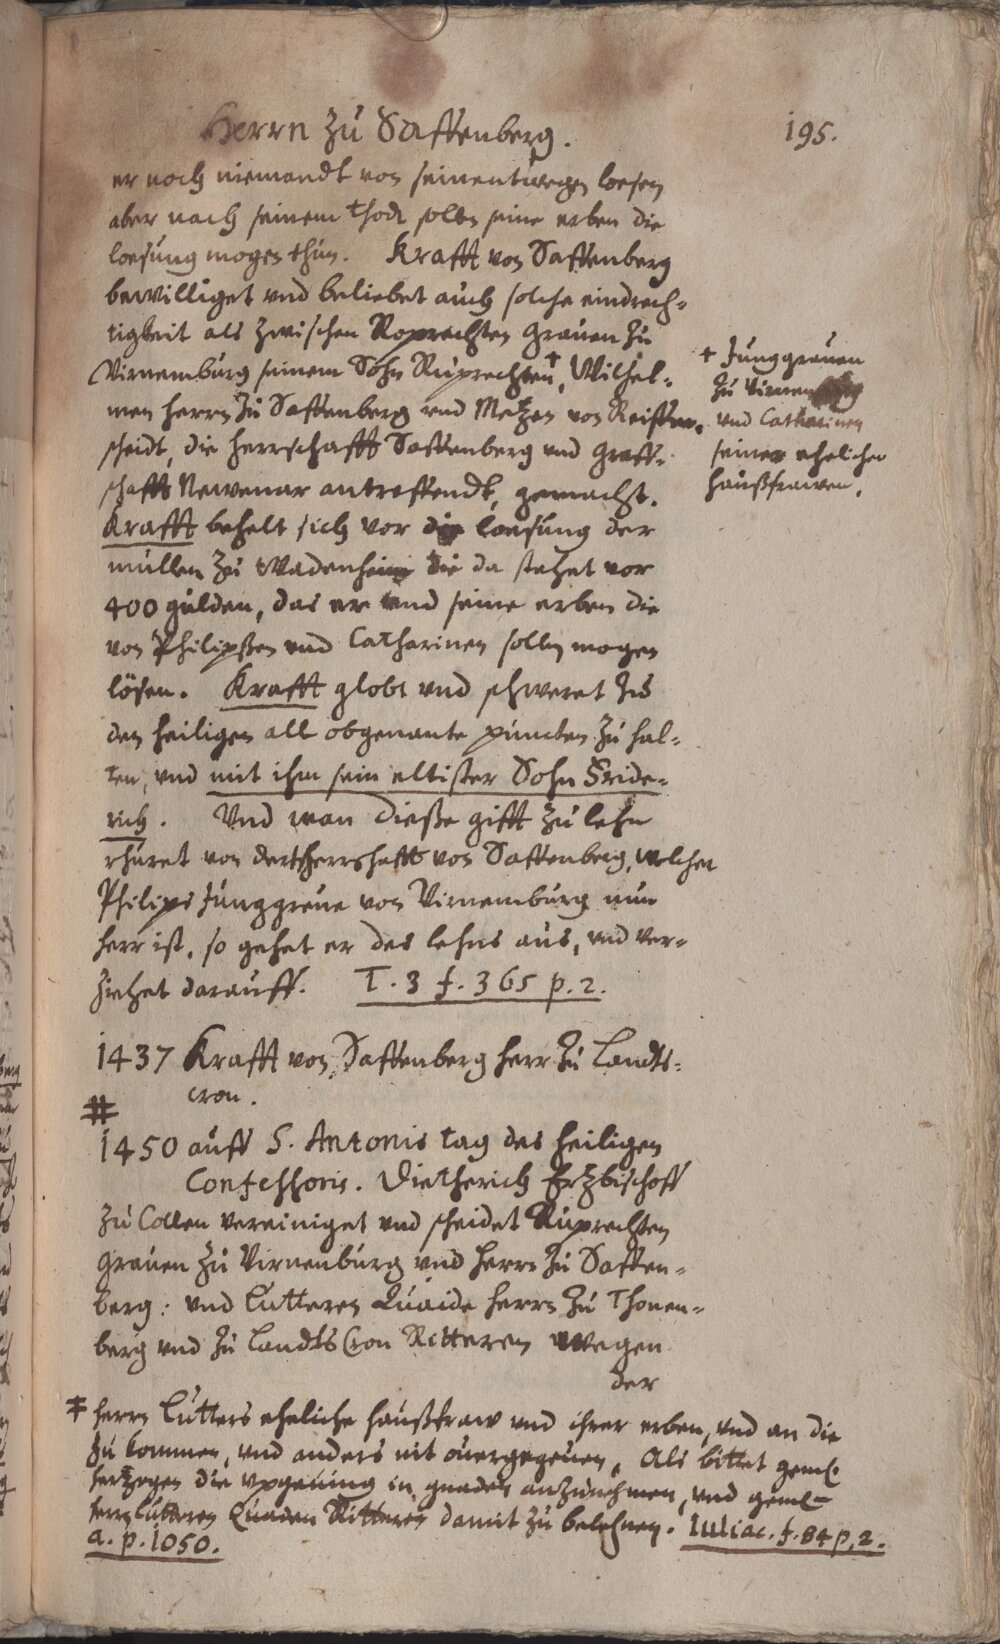 Herrn zu Saffenberg.
195.
er noch niemandt von seinentwegen loesen
aber nach seinem thode sollen seine erben die
loesung mogen thun. Krafft von Saffenberg
bewilliget vnd beliebet auch solche eindrech-
tigkeit als zwischen Roprechten Grauen zu
Virnemburg seinem Sohn Ruprechten †, Wilhel-
men herrn zu Saffenberg vnd Metzen von Reiffer-
scheidt, die herrschafft Saffenberg vnd Graff-
schafft Newenar antreffendt, gemacht.
Krafft behelt sich vor die loesung der
mullen zu Wadenheim die da stehet vor
400 gulden, das er vnd seine erben die
von Philipßen vnd Catharinen sollen mogen
lösen. Krafft globt vnd schweret zu
den heiligen all obgenante puncten zu hal-
ten, vnd mit ihm sein eltister Sohn Fride-
rich. Vnd wan dieße gifft zu lehn
rhuret von der herrschafft von Saffenberg, welcher
Philips Junggreue von Virnemburg nun
herr ist, so gehet er des lehns aus, vnd ver-
ziehet darauff. T. 3 f. 365 p. 2.
† Junggrauen
zu Virnem
vnd Catharinen
seiner ehelicher
haußfrawen.
1437 Krafft von Saffenberg herr zu Landts-
cron.
#
1450 auff S. Antonis tag des heiligen
Confessoris. Dietherich Ertzbischoff
zu Collen vereiniget vnd scheidet Ruprechten
Grauen zu Virnenburg vnd herrn zu Saffen-
berg: vnd Lutteren Quaide herrn zu Thonen-
berg vnd zu LandtsCron Ritteren wegen
der
‡ herrn Lutters eheliche haußfraw vnd ihrer erben, vnd an die
zu kommen, vnd anders nit ouergegeuen, Als bittet geml.
hertzogen die vpgeuing in gnaden anzunehmen, vnd geml
herrn Lutteren Quaden Ritteren damit zu belehnen. Iuliac. f. 84 p. 2.
a. p. 1050.